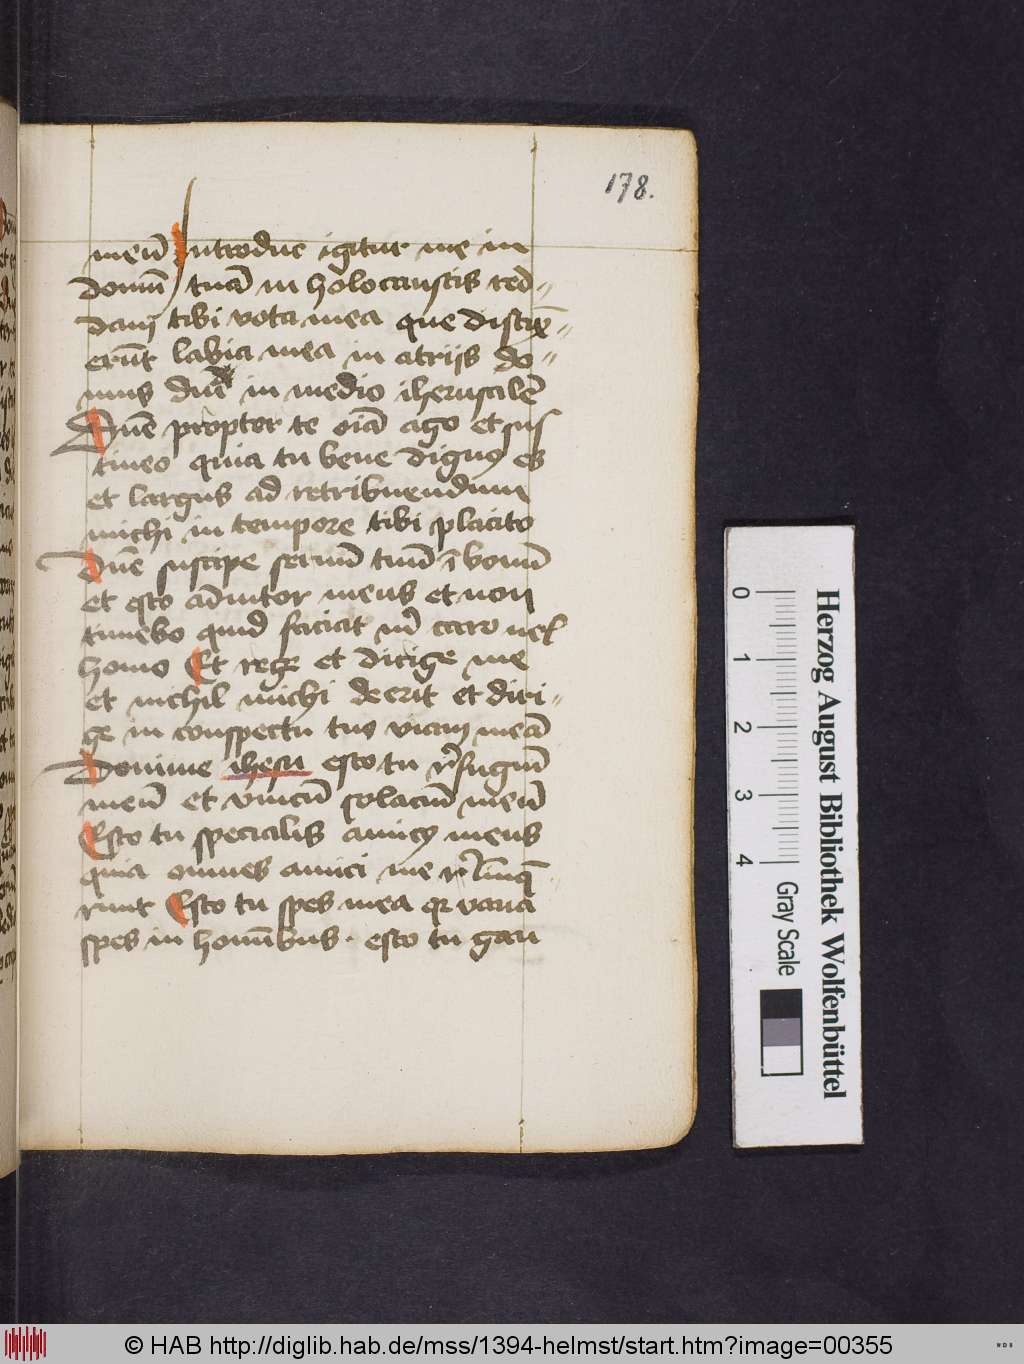 178.
meū Introduc igitur me in
domū tuā in holocaustis red-
dam tibi vota mea que distinx-
erūt labia mea in atrijs do-
mus dn̄i in medio iherusalē
Dn̄e propter te oīa ago et sus
tineo quia tu bene dignus es
et largus ad retribuendum
michi in tempore tibi placito
Dn̄e suscipe seruū tuū ī bonū
et esto adiutor meus et non
timebo quid faciat m̄ caro uel
homo Et rege et dirige me
et nichil michi deerit et diri-
ge in conspectu tuo viam meā
Domine ihesu esto tu refugiū
meū et vnicū solaciū meū
Esto tu specialis amicus meus
quia omnes amici me relinq̄
runt Esto tu spes mea qr vana
spes in hominibus. esto tu gau
Herzog August Bibliothek Wolfenbüttel
0 1 2 3 4 Gray Scale
© HAB http://diglib.hab.de/mss/1394-helmst/start.htm?image=00355